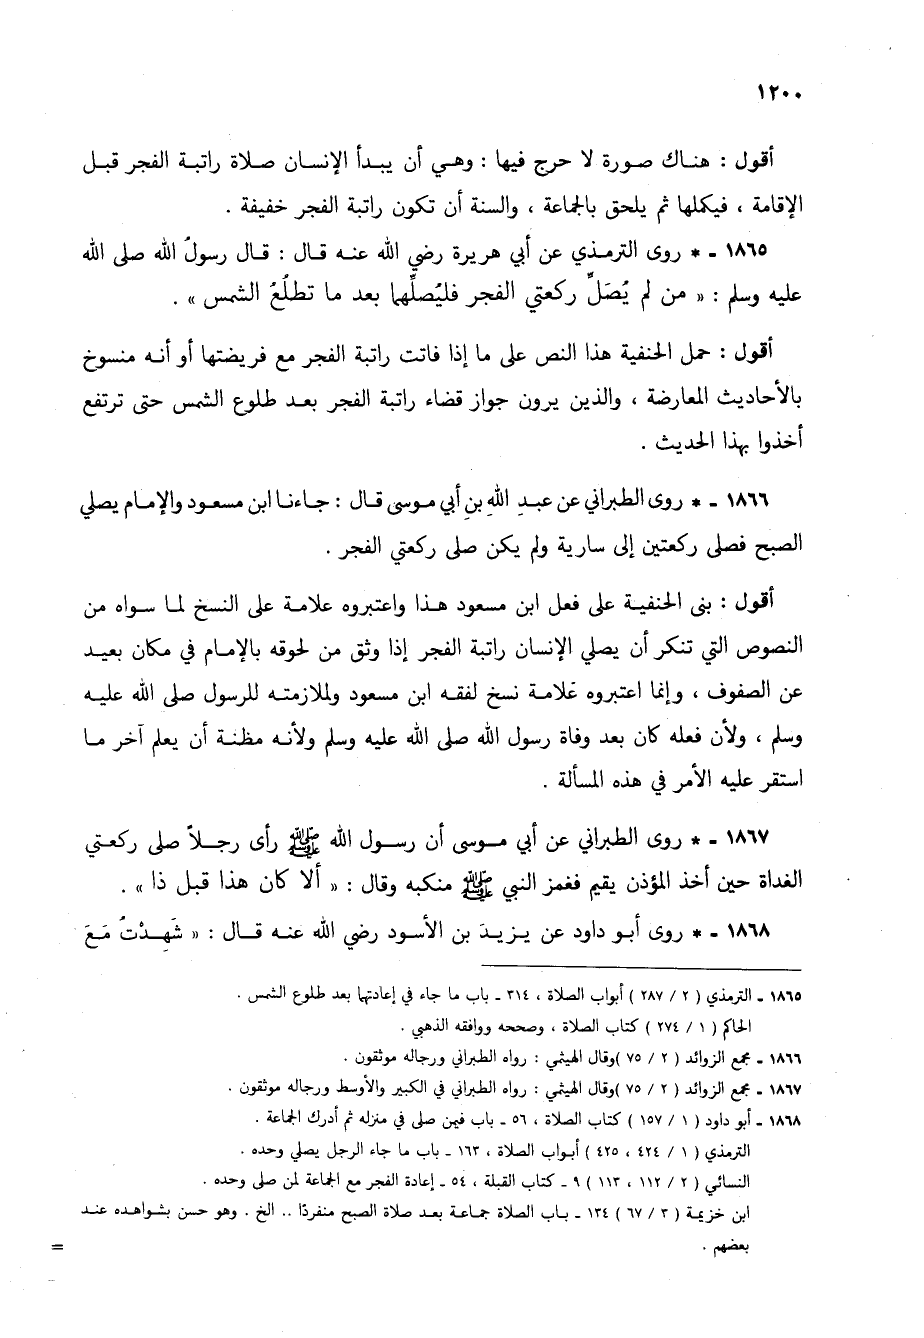 ١٢٠٠
أقول : هناك صورة لا حرج فيها : وهي أن يبدأ الإنسان صلاة راتبة الفجر قبل
الإقامة ، فيكملها ثم يلحق بالجماعة ، والسنة أن تكون راتبة الفجر خفيفة .
١٨٦٥ - * روى الترمذي عن أبي هريرة رضي الله عنه قال : قال رسولُ الله صلى الله
عليه وسلم : « من لم يُصَلِّ ركعتي الفجر فليُصلِّها بعد ما تطلُعُ الشمس » .
أقول : حمل الحنفية هذا النص على ما إذا فاتت راتبة الفجر مع فريضتها أو أنه منسوخ
بالأحاديث المعارضة ، والذين يرون جواز قضاء راتبة الفجر بعد طلوع الشمس حتى ترتفع
أخذوا بهذا الحديث .
١٨٦٦ - * روى الطبراني عن عبدِ اللهِ بنِ أبي موسى قال : جاءنا ابن مسعود والإمام يصلي
الصبح فصلى ركعتين إلى سارية ولم يكن صلى ركعتي الفجر .
أقول : بنى الحنفية على فعل ابن مسعود هذا واعتبروه علامة على النسخ لما سواه من
النصوص التي تنكر أن يصلي الإنسان راتبة الفجر إذا وثق من لحوقه بالإمام في مكان بعيد
عن الصفوف ، وإنما اعتبروه علامة نسخ لفقه ابن مسعود ولملازمته للرسول صلى الله عليه
وسلم ، ولأن فعله كان بعد وفاة رسول الله صلى الله عليه وسلم ولأنه مظنة أن يعلم آخر ما
استقر عليه الأمر في هذه المسألة .
١٨٦٧ - * روى الطبراني عن أبي موسى أن رسول الله ﷺ رأى رجلاً صلى ركعتي
الغداة حين أخذ المؤذن يقيم فغمز النبي ﷺ منكبه وقال : « ألا كان هذا قبل ذا » .
١٨٦٨ - * روى أبو داود عن يزيدَ بن الأسود رضي الله عنه قال : « شَهِدْتُ مَعَ
١٨٦٥ - الترمذي ( ٢ / ٢٨٧ ) أبواب الصلاة ، ٣١٤ - باب ما جاء في إعادتها بعد طلوع الشمس .
الحاكم ( ١ / ٢٧٤ ) كتاب الصلاة ، وصححه ووافقه الذهبي .
١٨٦٦ - مجمع الزوائد ( ٢ / ٧٥ )وقال الهيثمي : رواه الطبراني ورجاله موثقون .
١٨٦٧ - مجمع الزوائد ( ٢ / ٧٥ )وقال الهيثمي : رواه الطبراني في الكبير والأوسط ورجاله موثقون .
١٨٦٨ - أبو داود ( ١ / ١٥٧ ) كتاب الصلاة ، ٥٦ - باب فيمن صلى في منزله ثم أدرك الجماعة .
الترمذي ( ١ / ٤٢٤ ، ٤٢٥ ) أبواب الصلاة ، ١٦٣ - باب ما جاء الرجل يصلي وحده .
النسائي ( ٢ / ١١٢ ، ١١٣ ) ٩ - كتاب القبلة ، ٥٤ - إعادة الفجر مع الجماعة لمن صلى وحده .
ابن خزيمة ( ٣ / ٦٧ ) ١٣٤ - باب الصلاة جماعة بعد صلاة الصبح منفردًا .. الخ . وهو حسن بشواهده عند
بعضهم . =